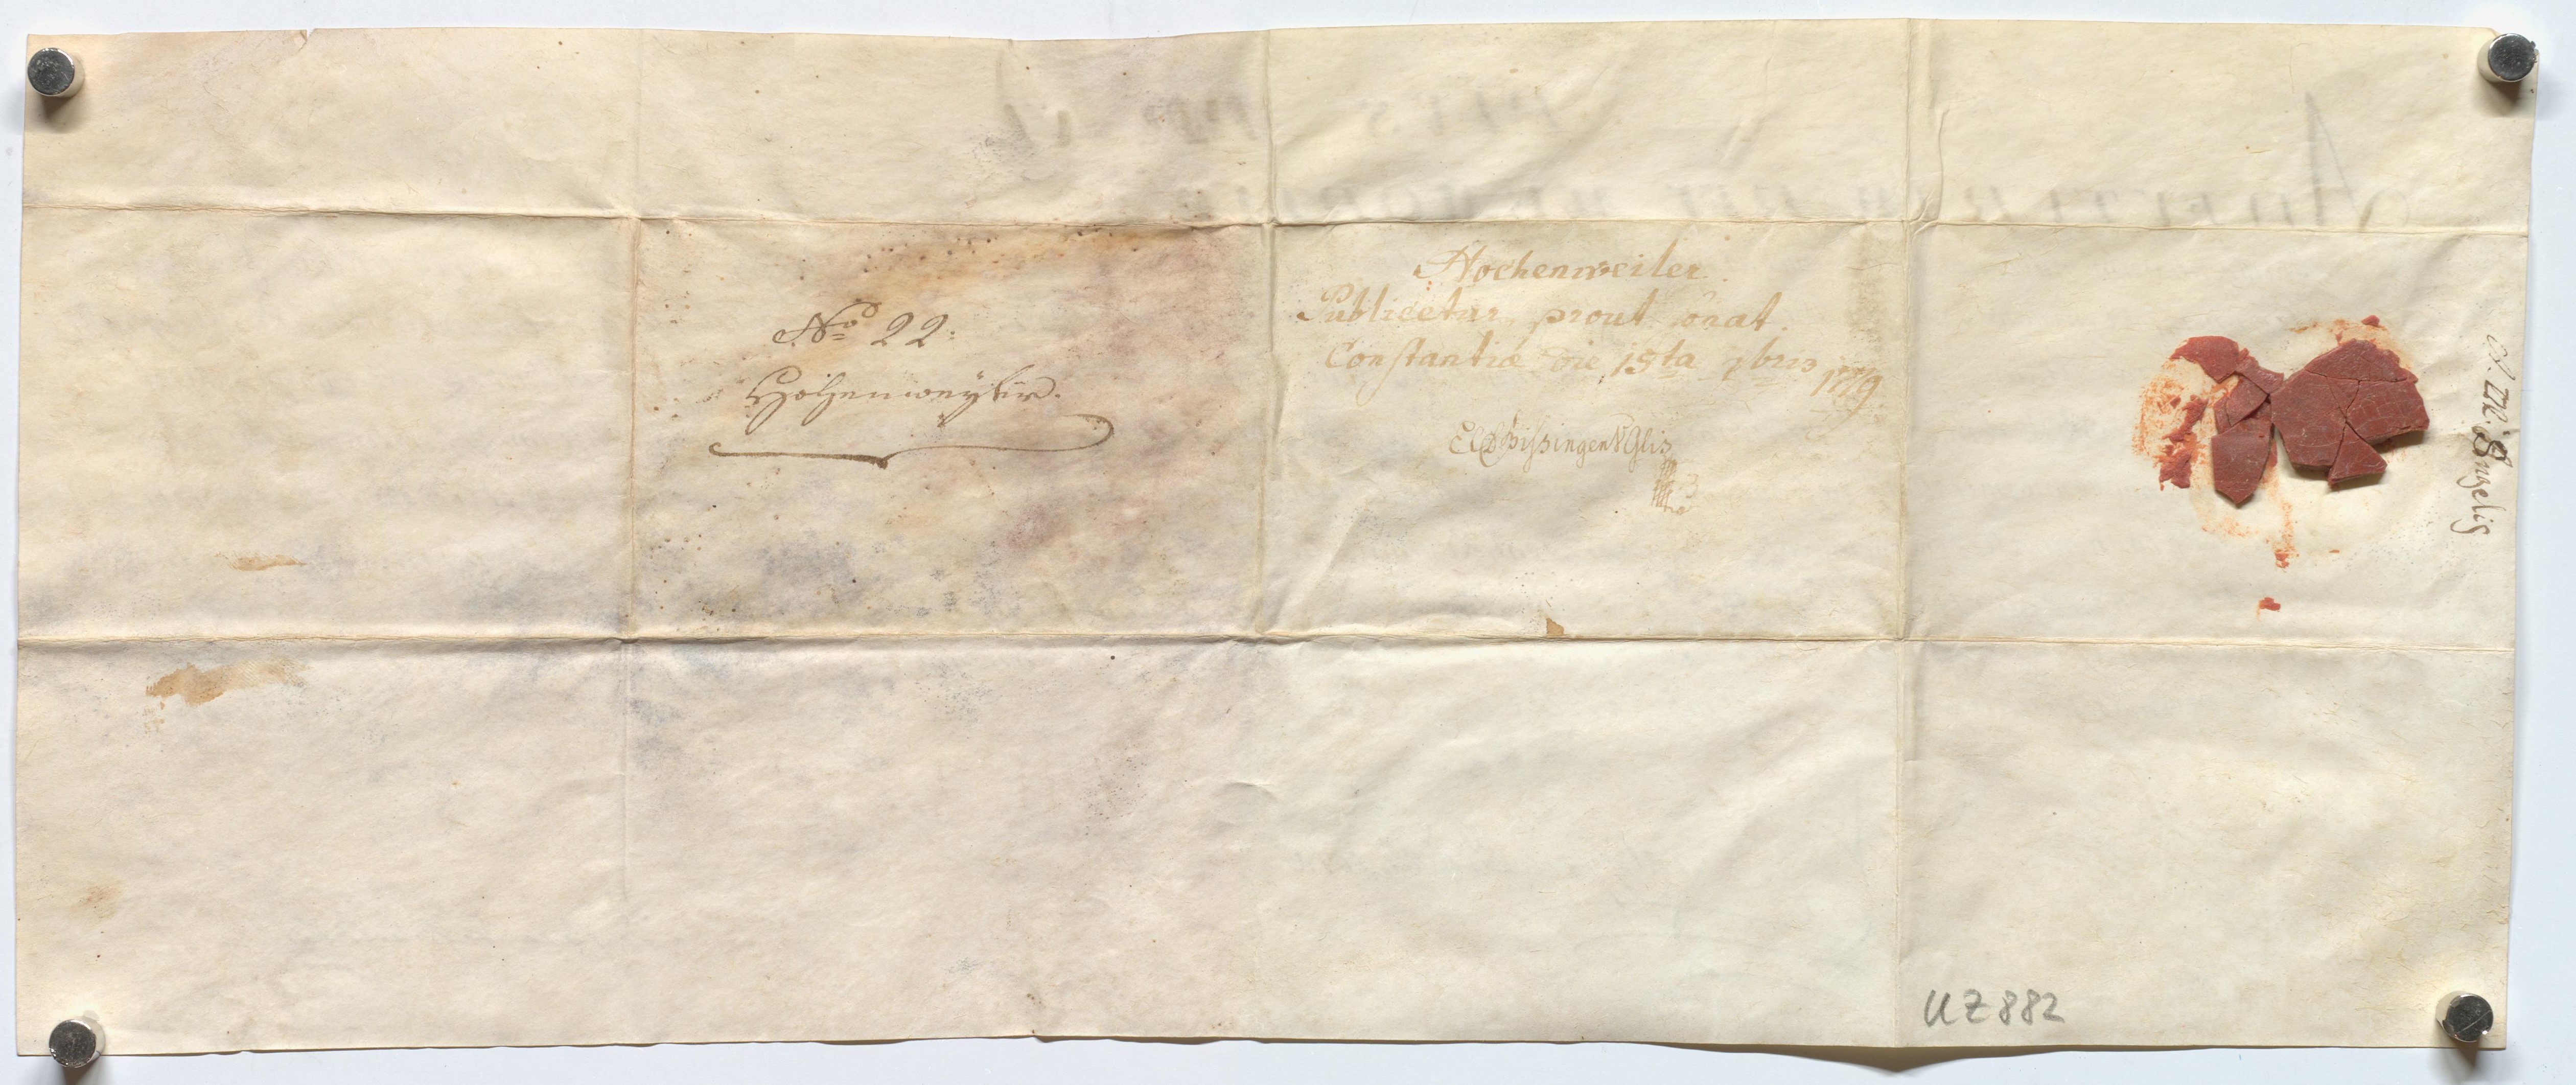 No 22:
Hohenweyler.
Hochenweiler.
Publicetur prout sonat.
Constantiæ die 15ta 7bris 1779
Bissingen VGlis
de Angelis
UZ882